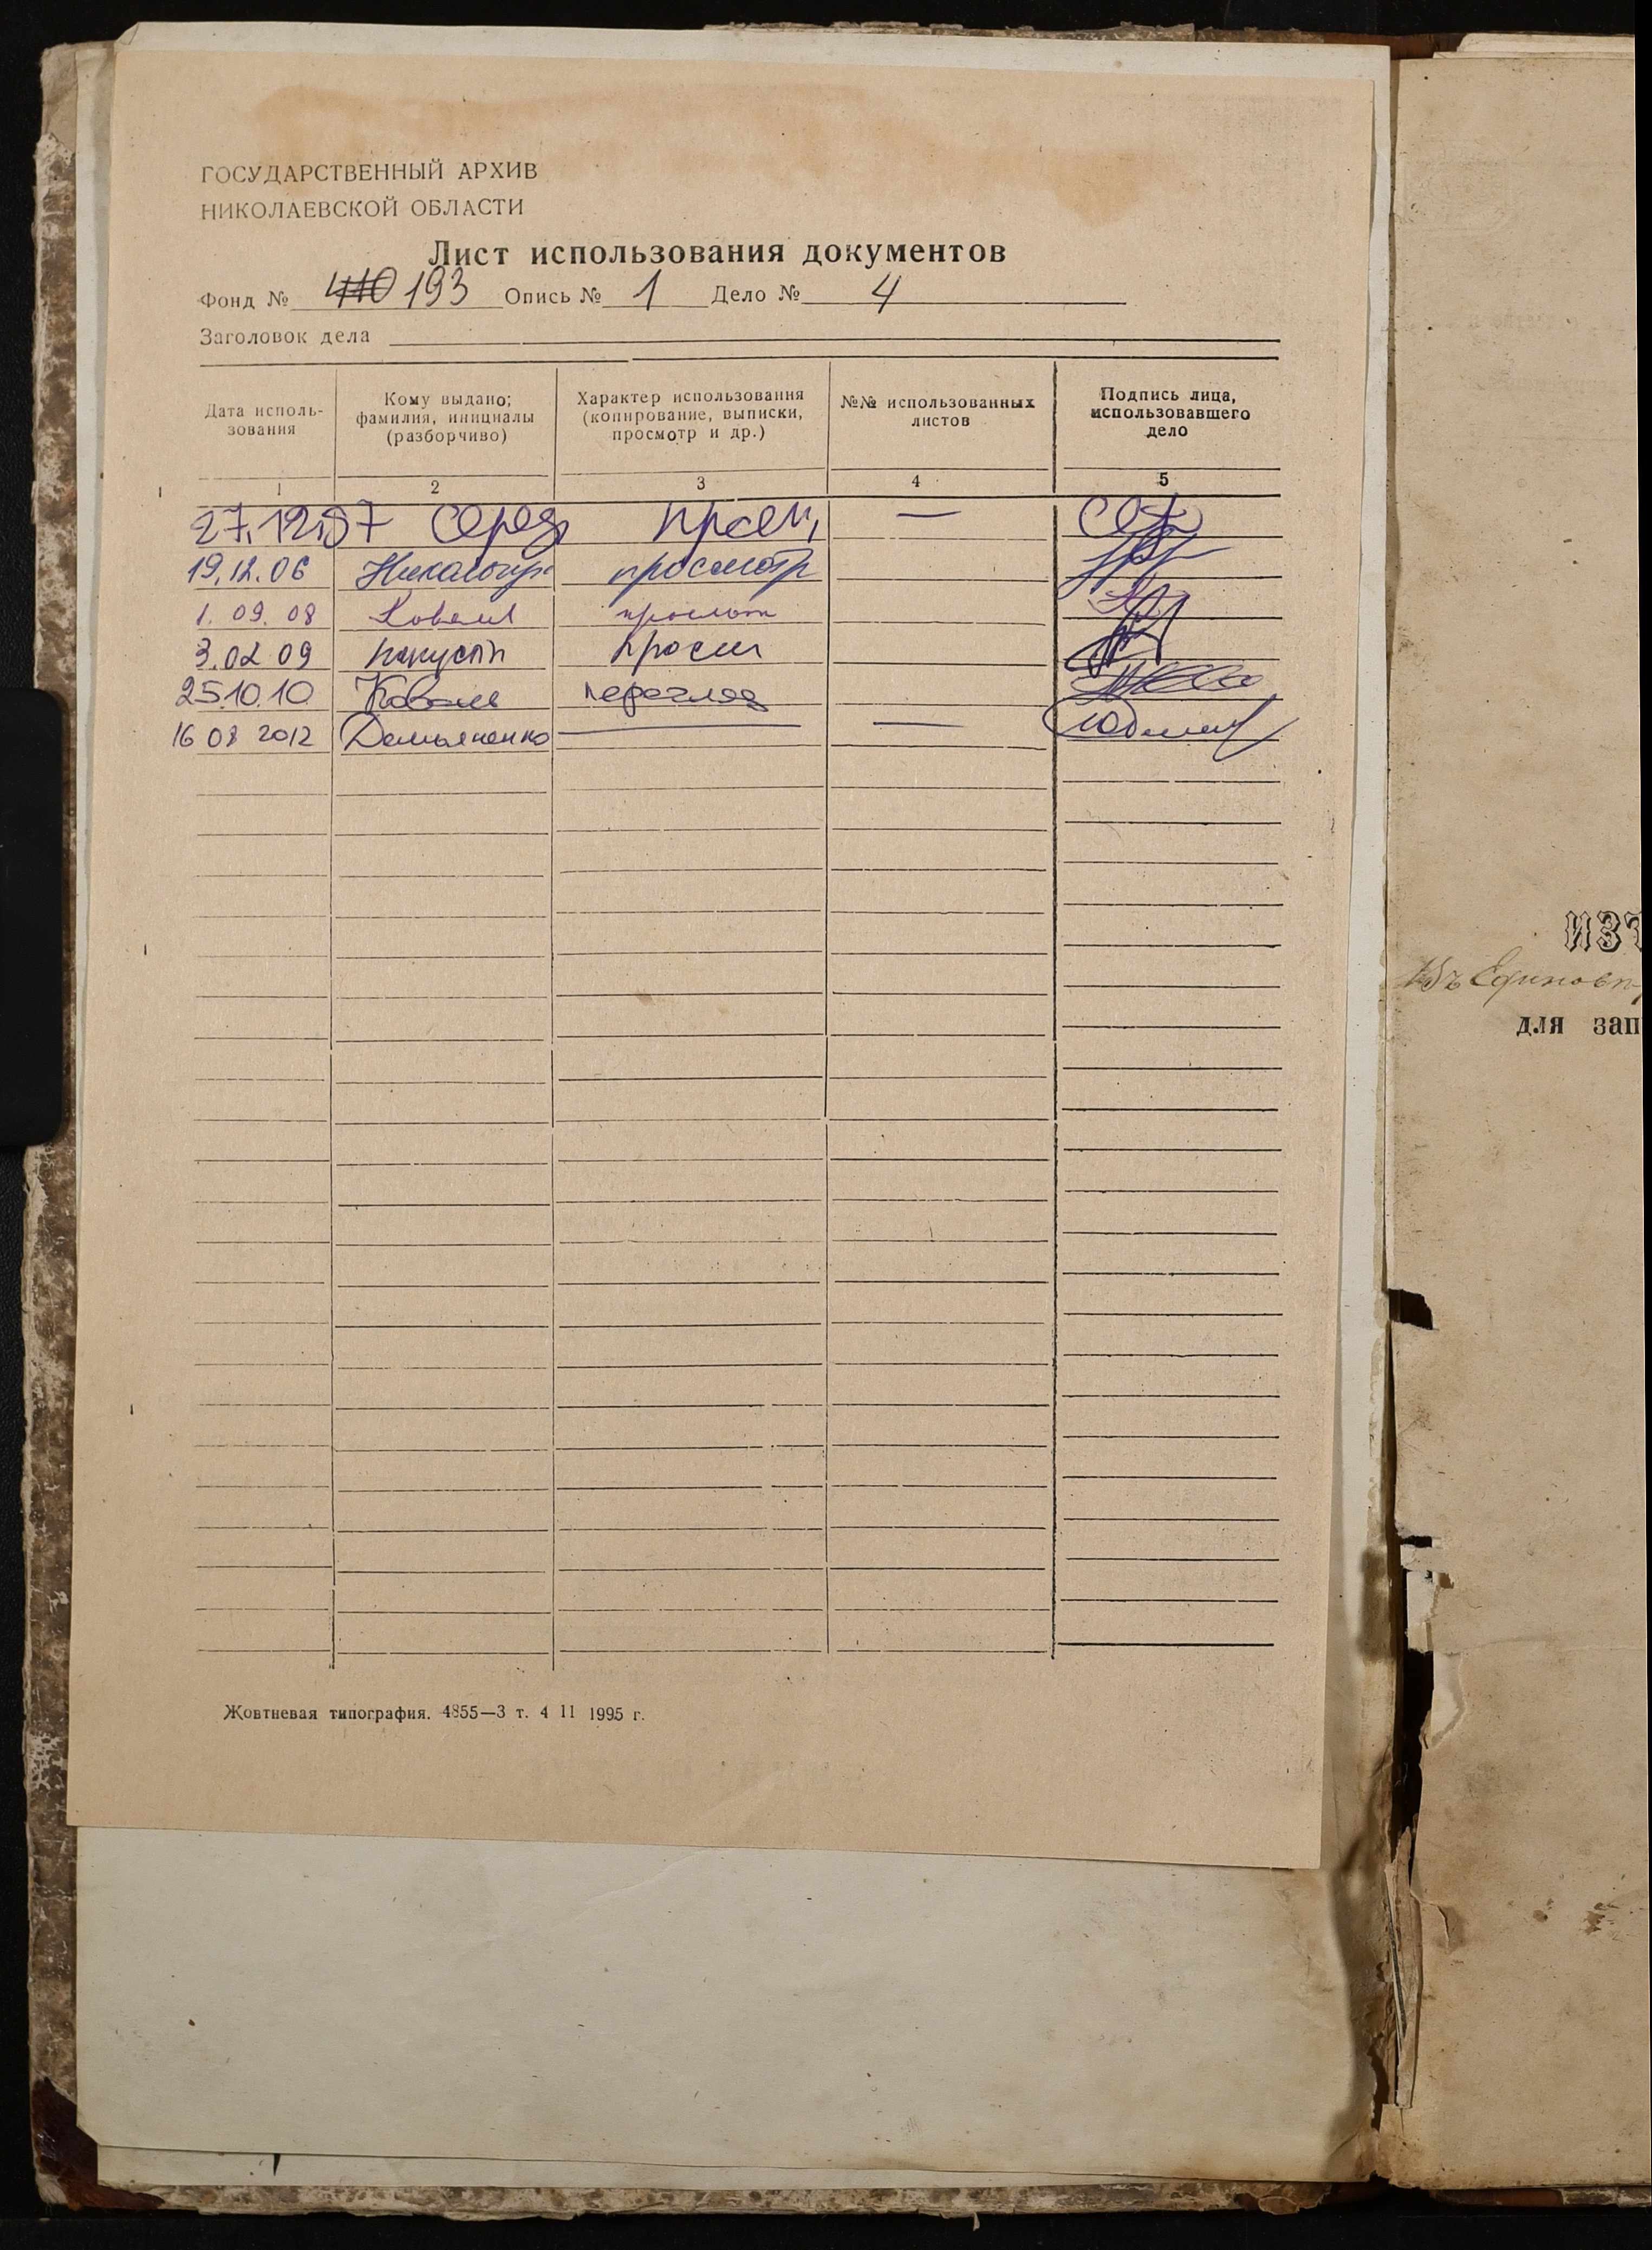 ГОСУДАРСТВЕННЫЙ АРХИВ
НИКОЛАЕВСКОЙ ОБЛАСТИ
Лист использования документов
Фонд № 193 Опись № 1 Дело № 4
Заголовок дела
Дата исполь-
зования
Кому выдано;
фамилия, инициалы
(разборчиво)
Характер использования
(копирование, выписки,
просмотр и др.)
№№ использованных
листов
Подпись лица,
использовавшего
дело
1 2 3 4 5
27.12.97 просм, —
19.12.06 просмотр
1. 09. 08 Коваль
3.02 09 просм
25.10.10 Коваль перегляд
16 08 2012 Демьяненко — —
Жовтневая типография. 4855—3 т. 4 11 1995 г.
ИЗЪ
для зап